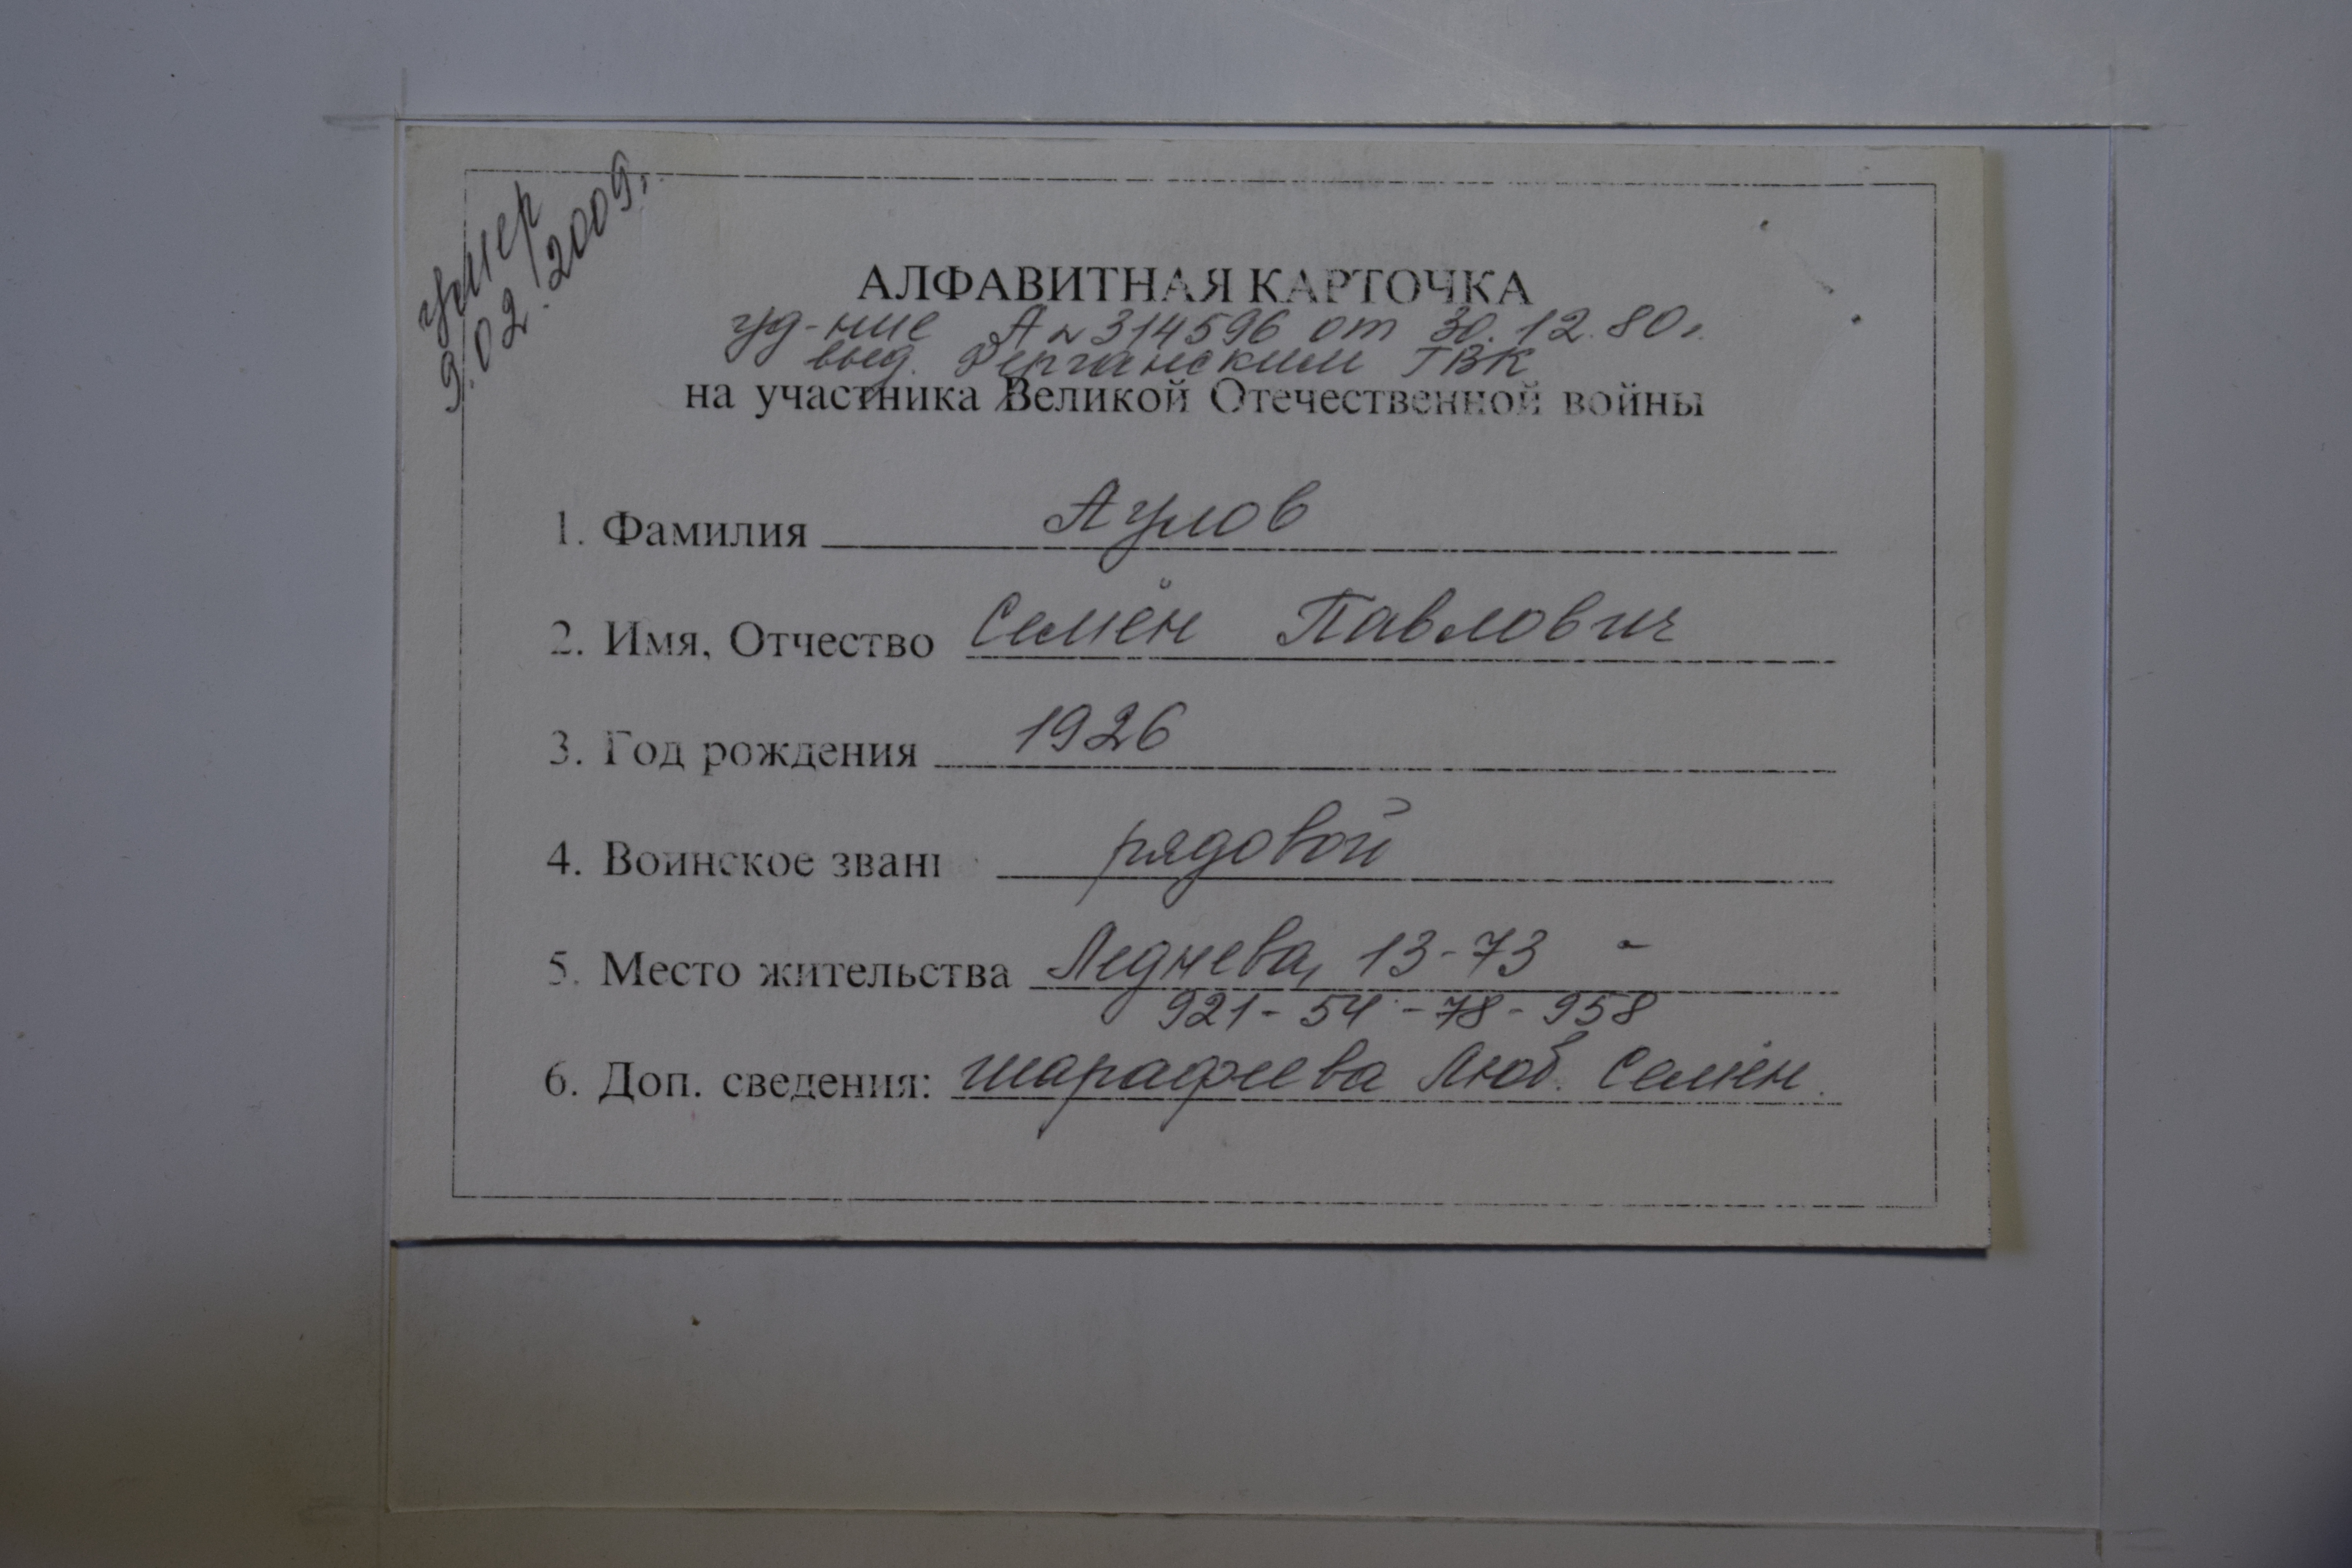 умер
9.02.2009г.
АЛФАВИТНАЯ КАРТОЧКА
уд-ние А № 314596 от 30.12.80г.
выд. Ферганским ГВК
на участника Великой Отечественной войны
1. Фамилия Аулов
2. Имя, Отчество Семён Павлович
3. Год рождения 1926
4. Воинское звані рядовой
5. Место жительства Леднева, 13-73
921-54-78-958
6. Доп. сведения: Шарафеева Люб. Семён.